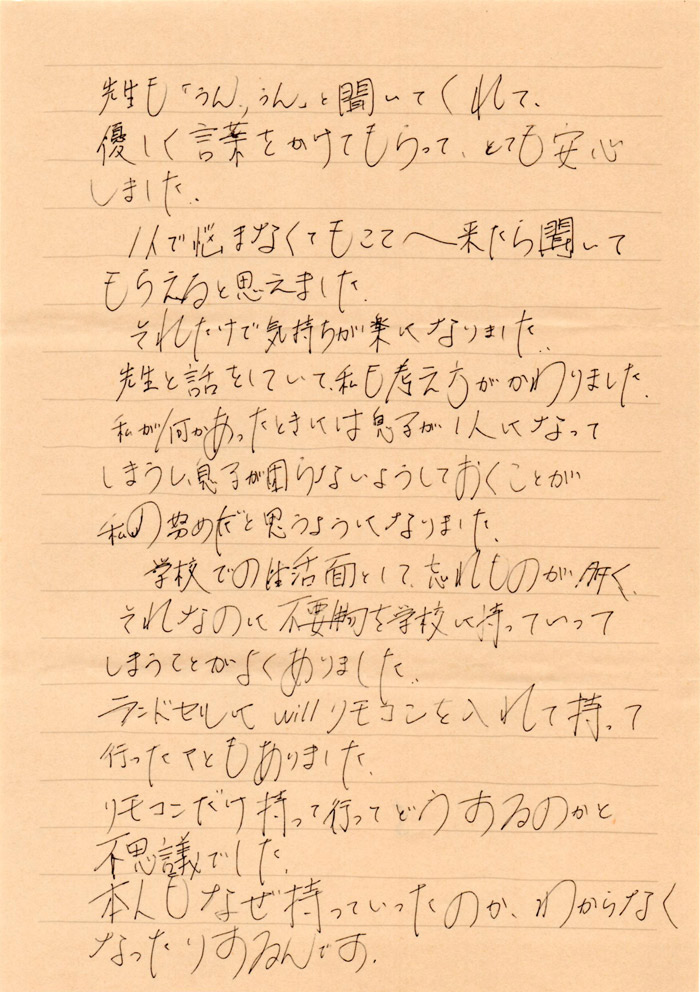 先生も「うん、うん」と聞いてくれて、
優しく言葉をかけてもらって、とても安心
しました。
1人で悩まなくてもここへ来たら聞いて
もらえると思えました。
それだけで気持ちが楽になりました。
先生と話をしていて、私も考え方がかわりました。
私が何かあったときには息子が1人になって
しまうし、息子が困らないようしておくことが
私の努めだと思うようになりました。
学校での生活面として、忘れものが多く、
それなのに不要物を学校に持っていって
しまうことがよくありました。
ランドセルに willリモコンを入れて持って
行ったこともありました。
リモコンだけ持って行ってどうするのかと
不思議でした。
本人もなぜ持っていったのか、わからなく
なったりするんです。